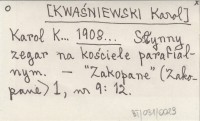 [KWAŚNIEWSKI Karol]
Karol K... 1908... Słynny
zegar na kościele parafial-
nym. — "Zakopane" (Zako-
pane) 1, nr 9: 12.